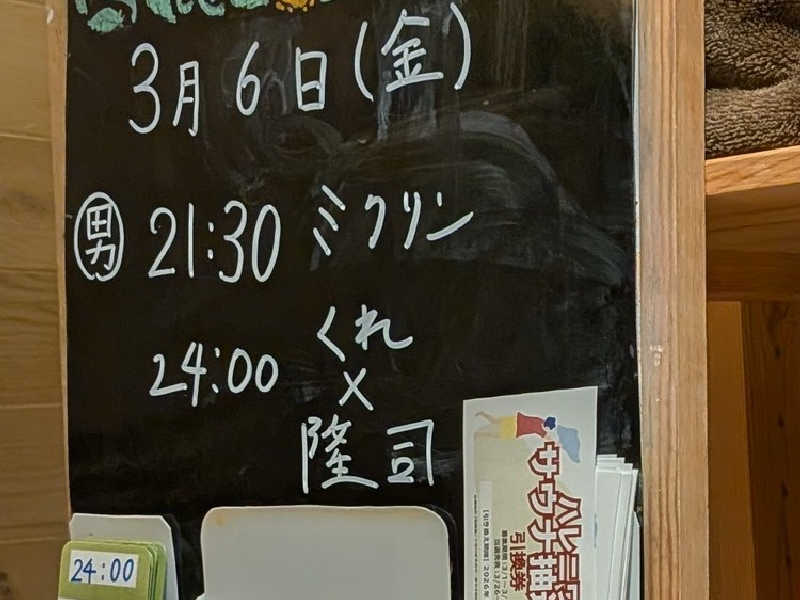 3月6日(金)
男 21:30 ミクリン
24:00 くれ
×
隆司
24:00
サウナ
引換券